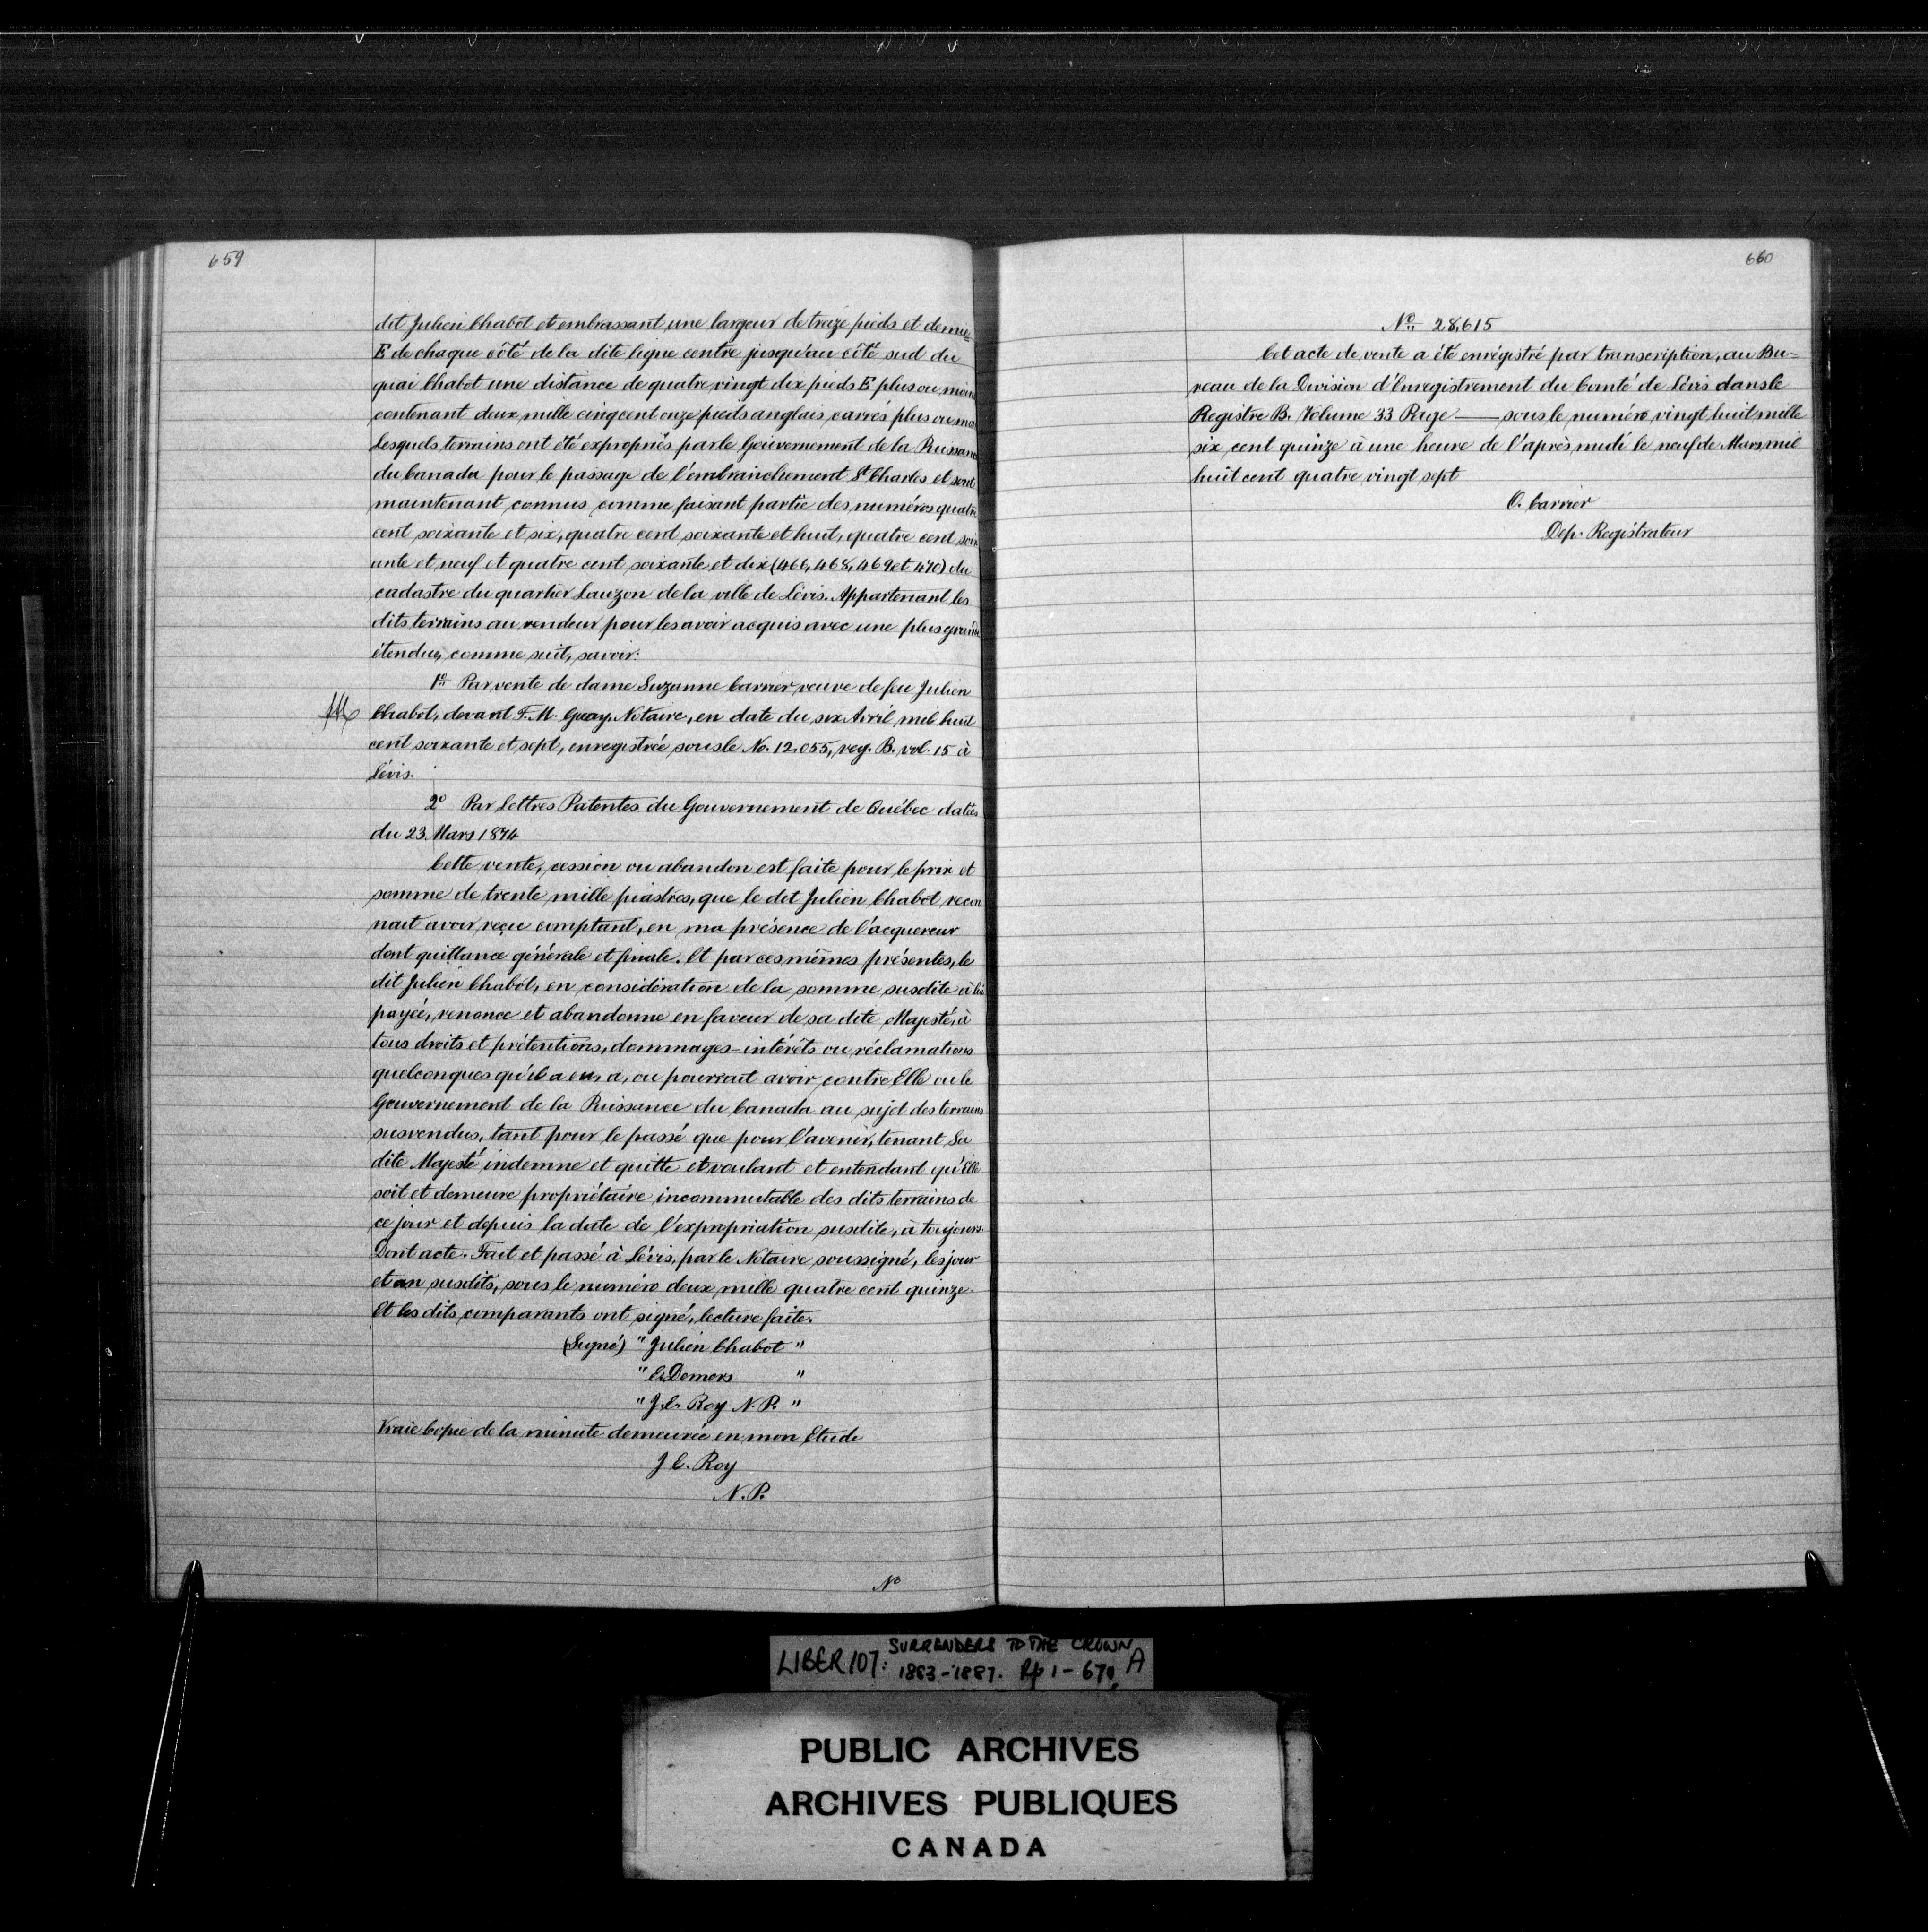 659
dit Julien Chabot et embrassant une largeur de treize pieds et demie
E de chaque côté de la dite ligne centre jusqu'au côté sud du
quai Chabot une distance de quatre vingt dix pieds E plus ou moins
contenant deux mille cinq cent onze pieds anglais carrés plus ou
Lesquels terrains ont été expropriés par le Gouvernement de la Puissance
du Canada pour le passage de l'embranchement St Charles et sont
maintenant connus comme faisant partie des numéros quatre
cent soixante et six, quatre cent soixante et huit, quatre cent soix
ante et neuf et quatre cent soixante et dix (466, 468, 469 et 470) du
cadastre du quartier Lauzon de la ville de Lévis. Appartenant les
dits terrains au vendeur pour les avoir acquis avec une plus grande
étendue, comme suit, savoir:
1o Par vente de dame Suzanne Carrier, veuve de feu Julien
Chabot, devant F. M. Guay, Notaire, en date du six Avril mil huit
cent soixante et sept, enregistrée sous le No. 12.055, reg. B. vol. 15 à
Lévis.
2o Par Lettres Patentes du Gouvernement de Québec datées
du 23. Mars 1874
Cette vente, cession ou abandon est faite pour le prix et
somme de trente mille piastres, que le dit Julien Chabot recon
nait avoir reçue comptant, en ma présence de l'acquereur
dont quittance générale et finale. Et par ces mêmes présentes, le
dit Julien Chabot, en considération de la somme susdite à lui
payée, renonce et abandonne en faveur de sa dite Majesté, à
tous droits et prétentions, dommages-intérêts ou réclamations
quelconques qu'il a eu, a, ou pourrait avoir contre Elle ou le
Gouvernement de la Puissance du Canada au sujet des terrains
susvendus, tant pour le passé que pour l'avenir, tenant Sa
dite Majesté indemne et quitte et voulant et entendant qu'Elle
soit et demeure propriétaire incommutable des dits terrains de
ce jour et depuis la date de l'expropriation susdite, à toujours.
Dont acte. Fait et passé à Lévis, par le Notaire soussigné, les jour
et an susdits, sous le numéro deux mille quatre cent quinze.
Et les dits comparants ont signé, lecture faite.
(Signé) "Julien Chabot"
"E. Demers"
"J. E. Roy N. P."
Vraie Copie de la minute demeurée en mon Etude
J. E. Roy
N. P.
No
660
No 28,615
Cet acte de vente a été enrégistré par transcription, au Bu=
reau de la Division d'Enregistrement du Comté de Lévis dans le
Registre B. Volume 33 Page — sous le numéro vingt huit mille
six cent quinze à une heure de l'après midi le neuf de Mars mil
huit cent quatre vingt sept
O. Carrier
Dep. Registrateur
LIBER 107: SURRENDERS TO THE CROWN
1883-1887. Pp 1-670, A
PUBLIC ARCHIVES
ARCHIVES PUBLIQUES
CANADA